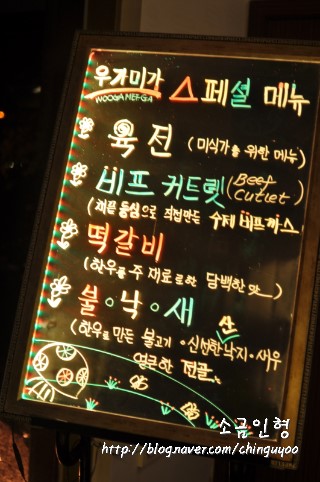 우가미가 스페셜 메뉴
WOOGAMEE-GA
육전 (미식가를 위한 메뉴)
비프 커트렛 (Beef Cutlet)
(채끝 등심으로 직접만든 수제 비프까스)
떡갈비
(한우를 주 재료로한 담백한 맛)
불•낙•새
(한우로 만든 불고기•신선한 산낙지•새우
얼큰한 전골
소금인형
http://blog.naver.com/chinguyoo